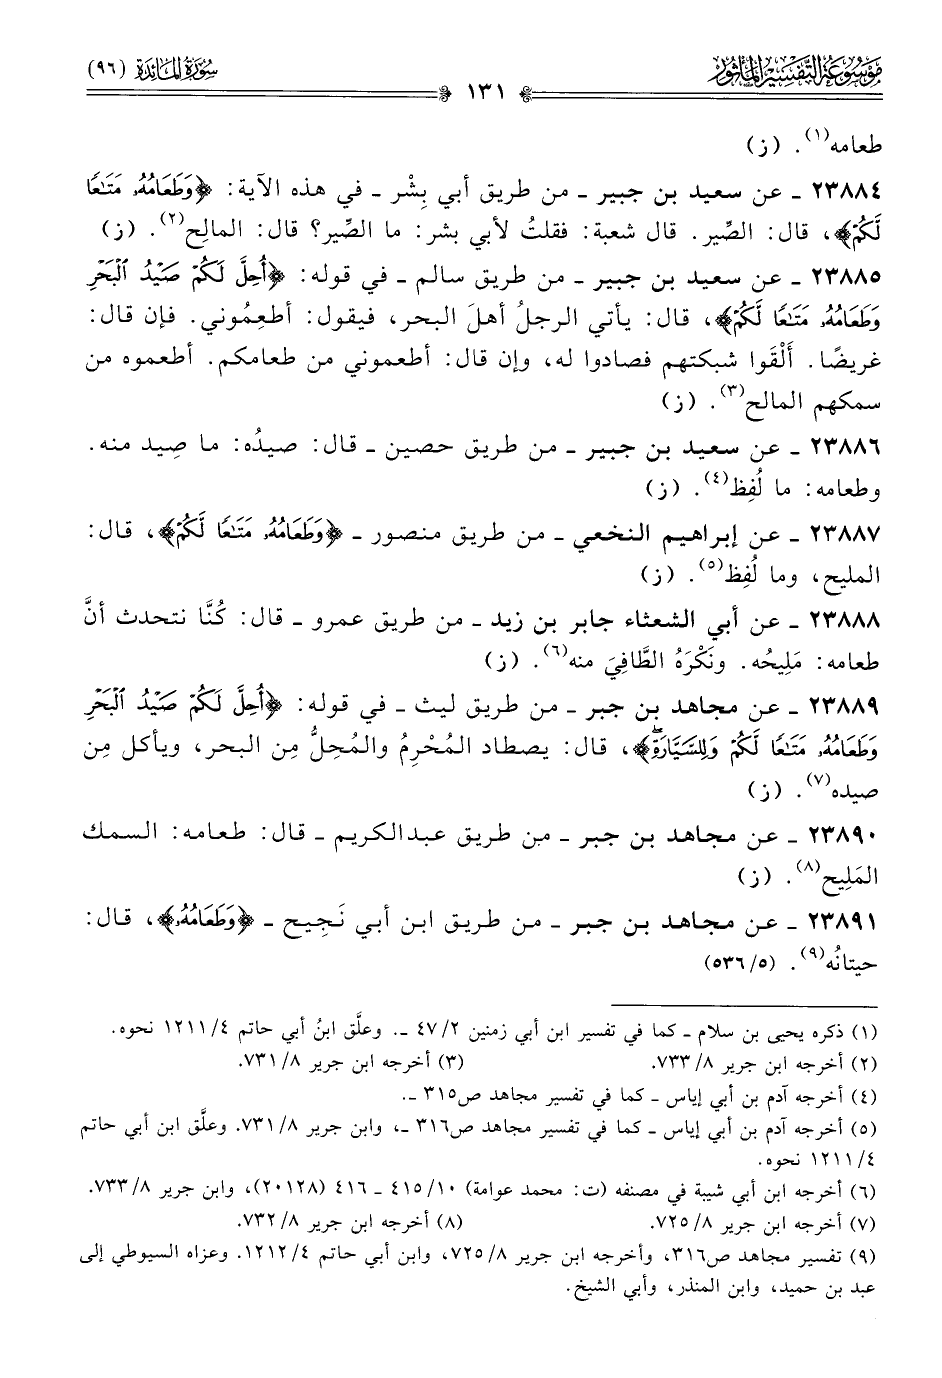 مَوْسُوعَة التَّفْسِير المَأْثُور
سُورَةُ المَائِدَة (٩٦)
١٣١
طعامه(١). (ز)
٢٣٨٨٤ ـ عن سعيد بن جبير ـ من طريق أبي بِشْر ـ في هذه الآية: ﴿وَطَعَامُهُۥ مَتَـٰعًا
لَّكُمۡ﴾، قال: الصِّير. قال شعبة: فقلتُ لأبي بشر: ما الصِّير؟ قال: المالِح(٢). (ز)
٢٣٨٨٥ ـ عن سعيد بن جبير ـ من طريق سالم ـ في قوله: ﴿أُحِلَّ لَكُمۡ صَيۡدُ ٱلۡبَحۡرِ
وَطَعَامُهُۥ مَتَـٰعًا لَّكُمۡ﴾، قال: يأتي الرجلُ أهلَ البحر، فيقول: أطعِمُوني. فإن قال:
غريضًا. أَلْقَوا شبكتهم فصادوا له، وإن قال: أطعموني من طعامكم. أطعموه من
سمكهم المالح(٣). (ز)
٢٣٨٨٦ ـ عن سعيد بن جبير ـ من طريق حصين ـ قال: صيدُه: ما صِيد منه.
وطعامه: ما لُفِظ(٤). (ز)
٢٣٨٨٧ ـ عن إبراهيم النخعي ـ من طريق منصور ـ ﴿وَطَعَامُهُۥ مَتَـٰعًا لَّكُمۡ﴾، قال:
المليح، وما لُفِظ(٥). (ز)
٢٣٨٨٨ ـ عن أبي الشعثاء جابر بن زيد ـ من طريق عمرو ـ قال: كُنَّا نتحدث أنَّ
طعامه: مَلِيحُه. ونَكْرَهُ الطَّافِيَ منه(٦). (ز)
٢٣٨٨٩ ـ عن مجاهد بن جبر ـ من طريق ليث ـ في قوله: ﴿أُحِلَّ لَكُمۡ صَيۡدُ ٱلۡبَحۡرِ
وَطَعَامُهُۥ مَتَـٰعًا لَّكُمۡ وَلِلسَّيَّارَةِۖ﴾، قال: يصطاد المُحْرِمُ والمُحِلُّ مِن البحر، ويأكل مِن
صيده(٧). (ز)
٢٣٨٩٠ ـ عن مجاهد بن جبر ـ من طريق عبدالكريم ـ قال: طعامه: السمك
المَلِيح(٨). (ز)
٢٣٨٩١ ـ عن مجاهد بن جبر ـ من طريق ابن أبي نَجِيح ـ ﴿وَطَعَامُهُۥ﴾، قال:
حيتانُه(٩). (٥/ ٥٣٦)
(١) ذكره يحيى بن سلام ـ كما في تفسير ابن أبي زمنين ٢/ ٤٧ ـ. وعلَّق ابنُ أبي حاتم ٤/ ١٢١١ نحوه.
(٢) أخرجه ابن جرير ٨/ ٧٣٣. (٣) أخرجه ابن جرير ٨/ ٧٣١.
(٤) أخرجه آدم بن أبي إياس ـ كما في تفسير مجاهد ص٣١٥ ـ.
(٥) أخرجه آدم بن أبي إياس ـ كما في تفسير مجاهد ص٣١٦ ـ، وابن جرير ٨/ ٧٣١. وعلَّق ابن أبي حاتم
٤/ ١٢١١ نحوه.
(٦) أخرجه ابن أبي شيبة في مصنفه (ت: محمد عوامة) ١٠/ ٤١٥ ـ ٤١٦ (٢٠١٢٨)، وابن جرير ٨/ ٧٣٣.
(٧) أخرجه ابن جرير ٨/ ٧٢٥. (٨) أخرجه ابن جرير ٨/ ٧٣٢.
(٩) تفسير مجاهد ص٣١٦، وأخرجه ابن جرير ٨/ ٧٢٥، وابن أبي حاتم ٤/ ١٢١٢. وعزاه السيوطي إلى
عبد بن حميد، وابن المنذر، وأبي الشيخ.